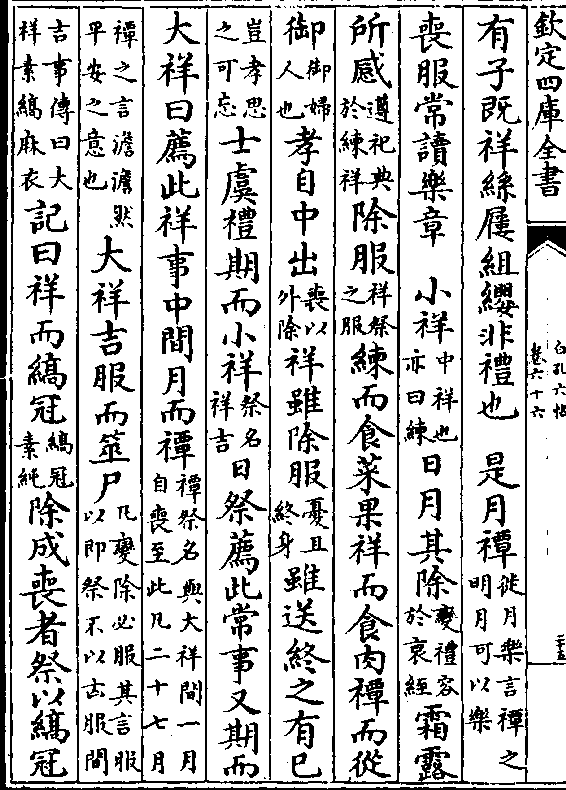 欽定四庫全書
白孔六帖
卷六十六
二十五
有子既祥絲屨組纓非禮也　是月禫徙月樂言禫之明月可以樂
喪服常讀樂章　小祥中祥也亦曰練日月其除變禮容於哀絰霜露
所感遵祀典於練祥除服祥祭之服練而食菜果祥而食肉禫而從
御御婦人也孝自中出喪以外除祥雖除服憂且終身雖送終之有已
豈孝思之可忘士虞禮期而小祥祭名祥吉曰祭薦此常事又期而
大祥曰薦此祥事中間月而禫禫祭名與大祥間一月自喪至此凡二十七月
禫之言澹澹然平安之意也大祥吉服而筮尸凡變除必服其言服以即祭不以古服間
吉事傳曰大祥素縞麻衣記曰祥而縞冠縞冠素純除成喪者祭以縞冠